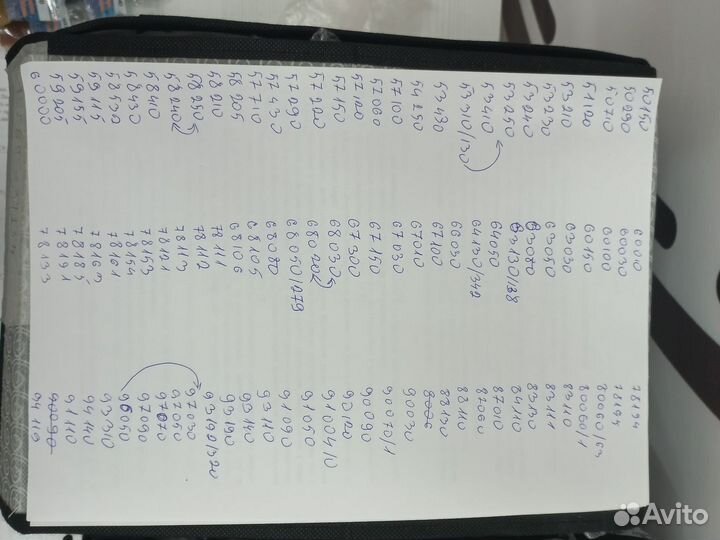 50150
50290
50710
51120
53210
53230
53240
53250
53410
53310/130
53430
54250
57100
57060
57120
57150
57220
57290
57430
57710
58205
58210
58250
58240
5840
58430
58520
59115
59155
59205
60000
60010
60030
60100
60150
63030
63050
63080
63130/128
64050
64130/342
66030
67100
67010
67030
67150
67300
68030
68020
68050/1279
68080
68105
68106
78111
78112
78113
78121
78153
78154
78161
78163
78185
78191
78193
78194
78194
80060/63
80060/1
83110
83111
83120
84110
87010
87060
88110
88130
90030
90070/1
90090
90120
91004/10
91050
91090
93110
93140
93190
93140/320
97030
97050
97070
97090
96050
93310
94140
91110
90090
94119
Avito